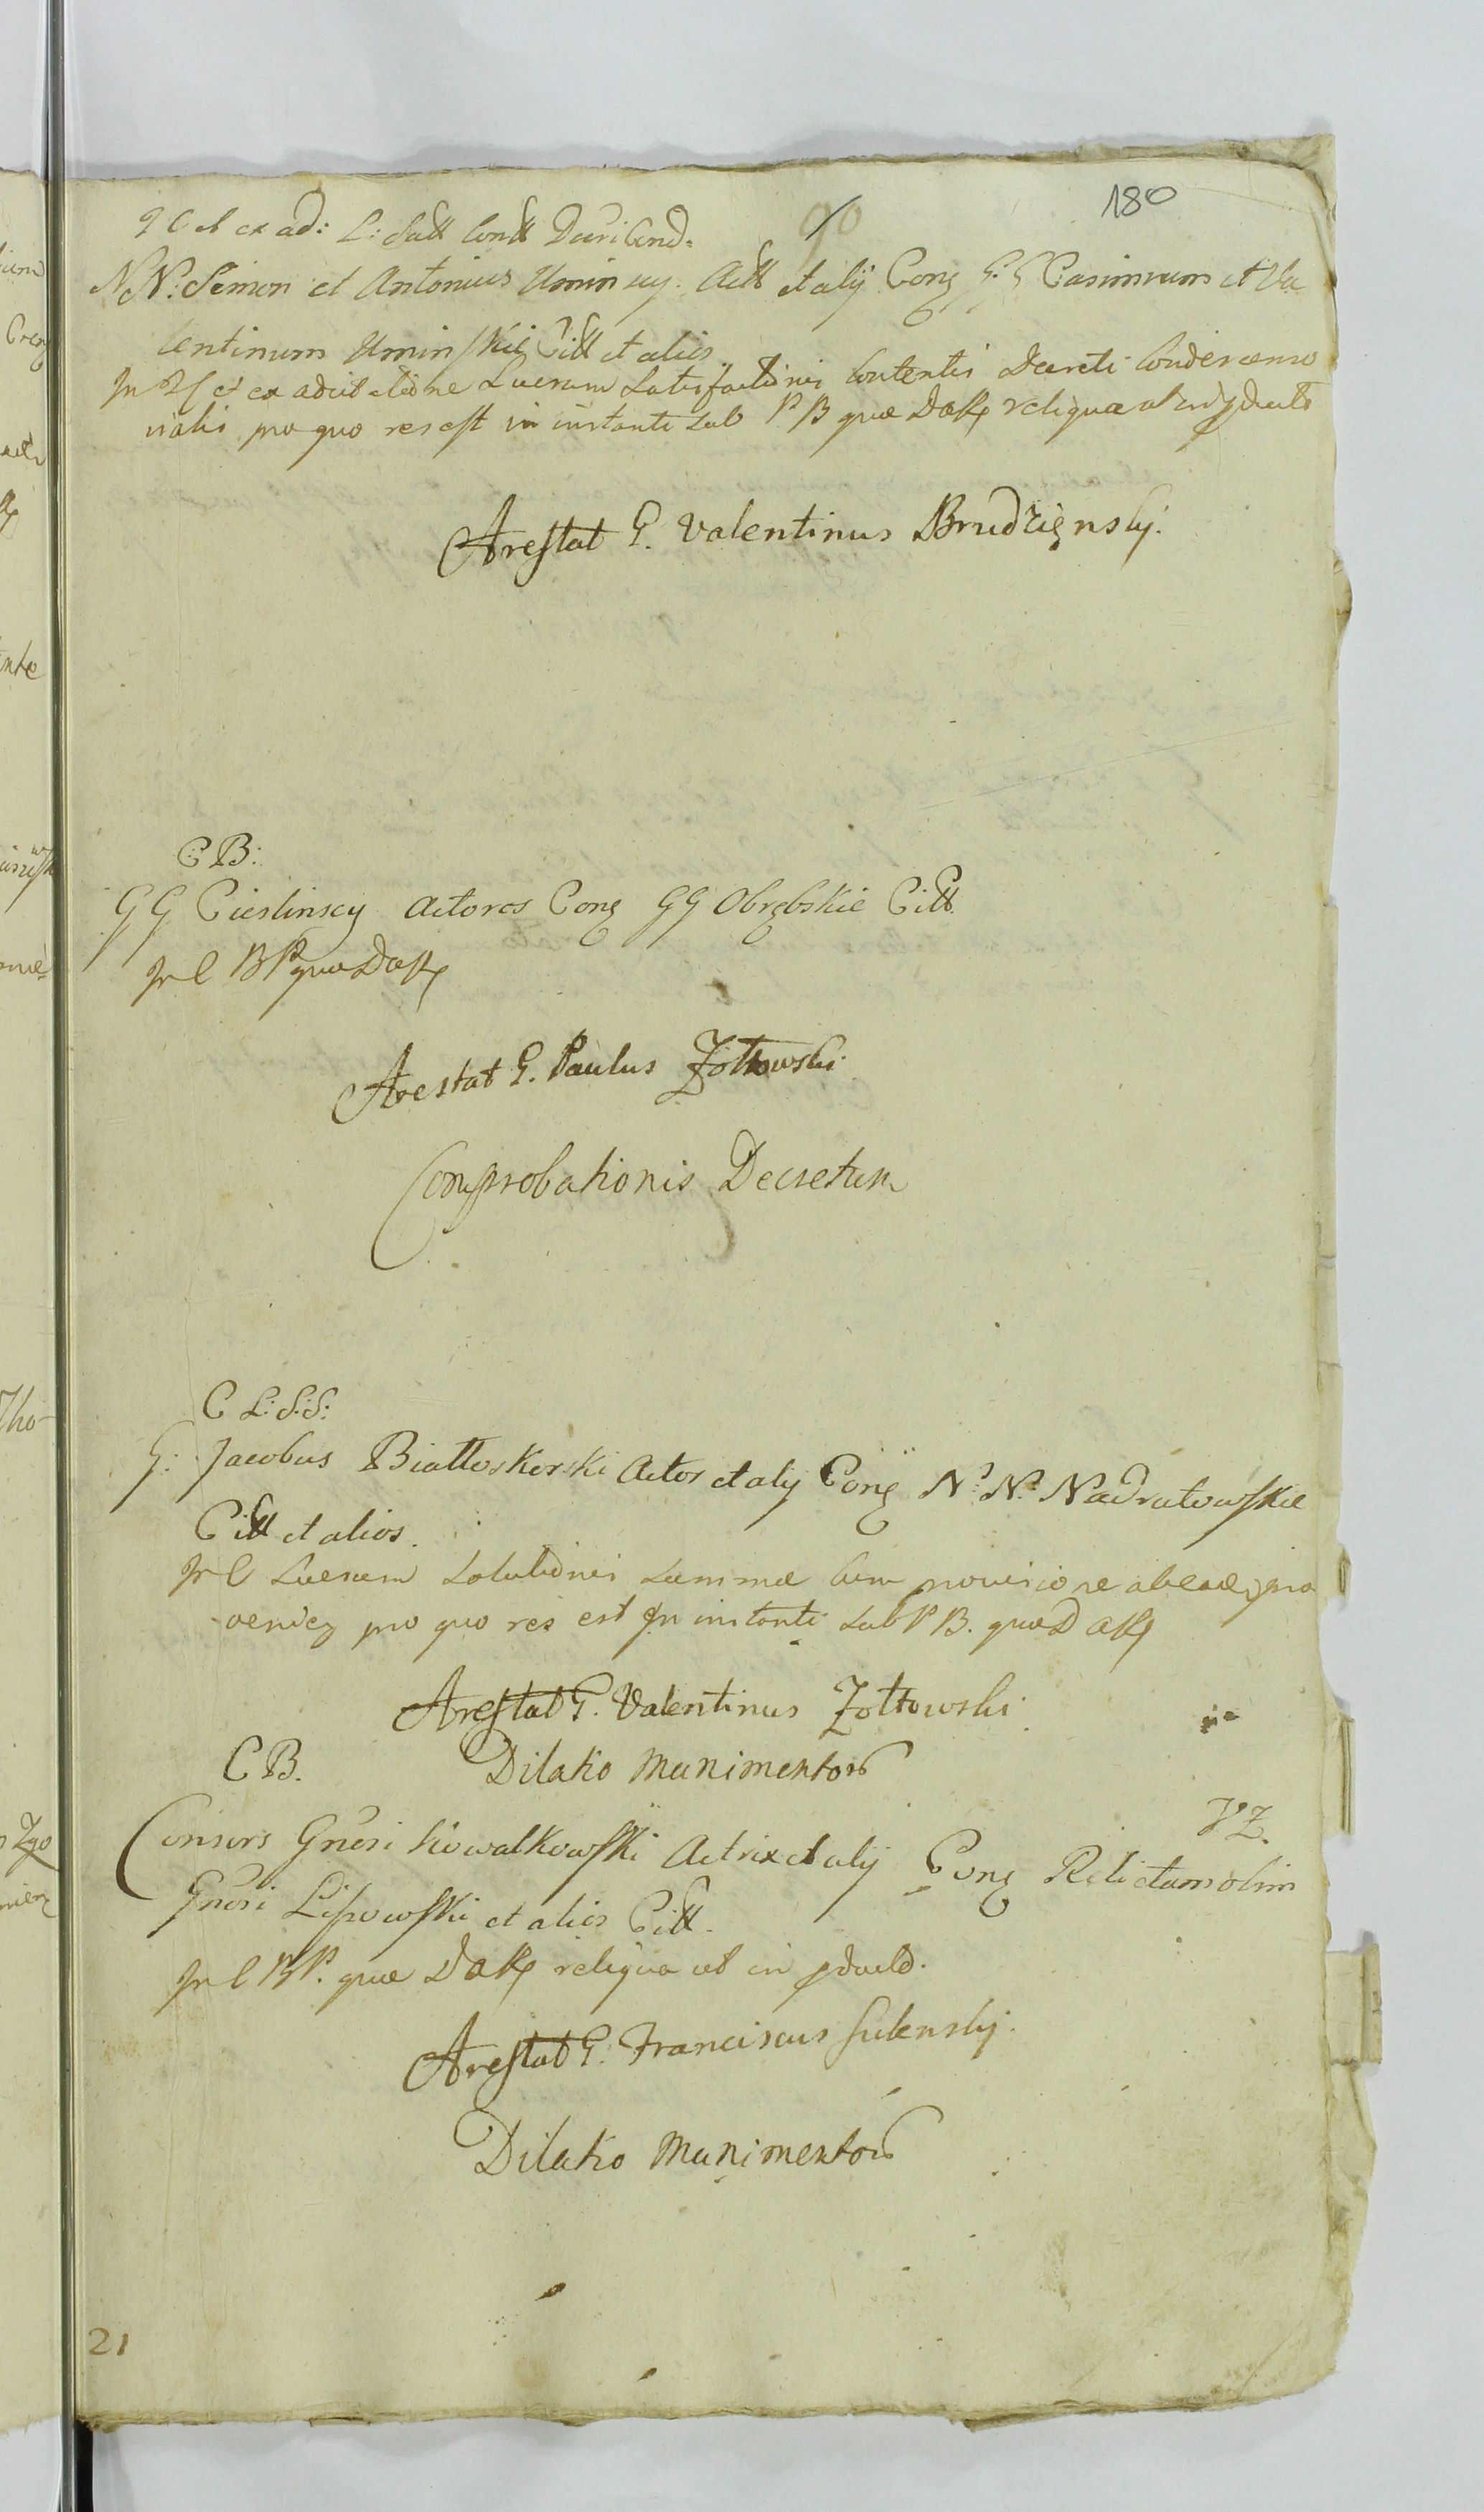 180
90
C et ex ad: L: Satt Cond Deuribend.
NN: Simon et Antonius Uminscy Actt et alÿ Cong G G Casimirum et Va
lentinum Uminskie Citt et alios
et ex adcitatione Luerum Satisfactionis Contentis Decreti Condemna
nialis pro quo res est in instanti sub PB quæ Dake reliqua ut in
Arestat G. Valentinus Brudzienskÿ.
C B:
GG Cieslinscy Actores Cong GG Obrębskie Citt.
In C BP quæ Dake
Arestat G. Paulus Zołtowski
Comprobationis Decretum
C L: S: S:
G: Jacobus Białłoskorski Actor et alÿ Cong N: N: Nadratowskie
Citt et alios.
In C Luerum Solutionis Summæ cum provisione ab eadem pro
veniez pro quo res est in instanti sub PB. quæ Dake
Arestat G. Valentinus Zołtowski
C B.
Dilatio Munimentors
VZ.
Consors Gnosi Kowalkowski Actrix et alÿ Cong Relictam olim
Gnosi Lipowski et alios Citt.
In C BP. quæ Dake reliqua ut in
Arestat G. Franciscus Sulenskÿ.
Dilatio Munimentors
21